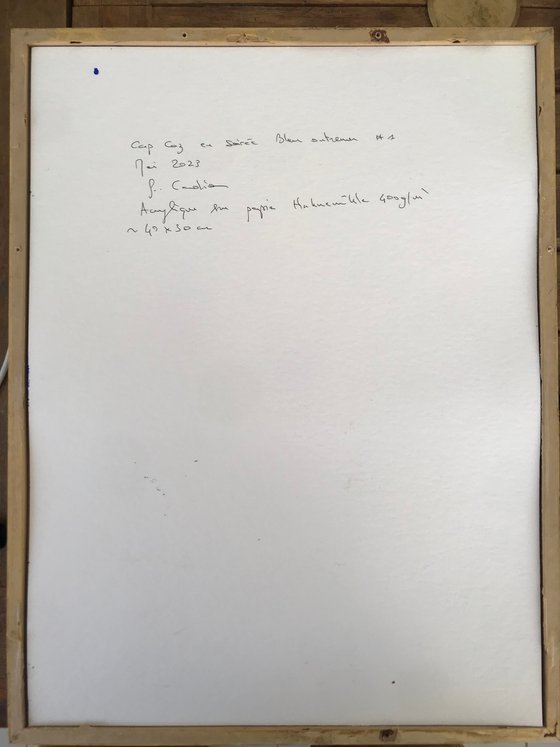 Cap Coz en soirée Bleu outremer #1
Mai 2023
Acrylique sur papier Hahnemühle 400g/m²
~ 40 x 30 cm